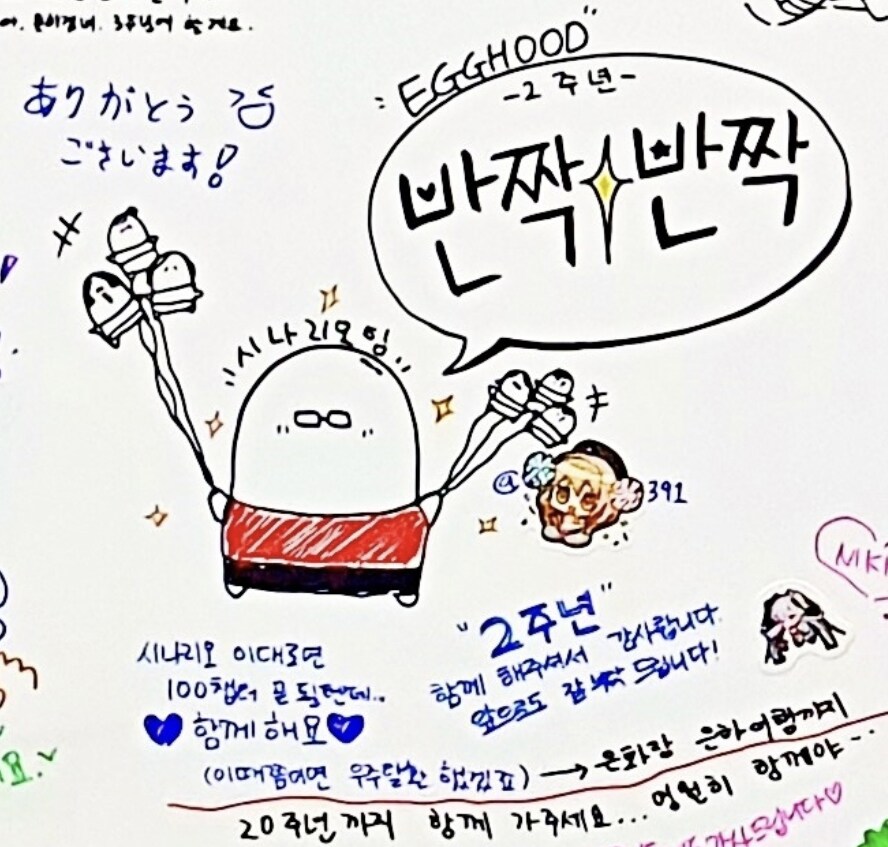 ありがとう
ございます!
"EGGHOOD"
-2주년-
반짝반짝
시나리오팀
@ 391
시나리오 이대로면
100챕터 곧 될텐데..
함께해요
(이때쯤이면 우주탈환 했겠죠)
"2주년"
함께 해주셔서 감사합니다.
앞으로도 잘 부탁 드립니다!
→ 은하여행까지
20주년까지 함께 가주세요... 영원히 함께야..
감사드립니다♡